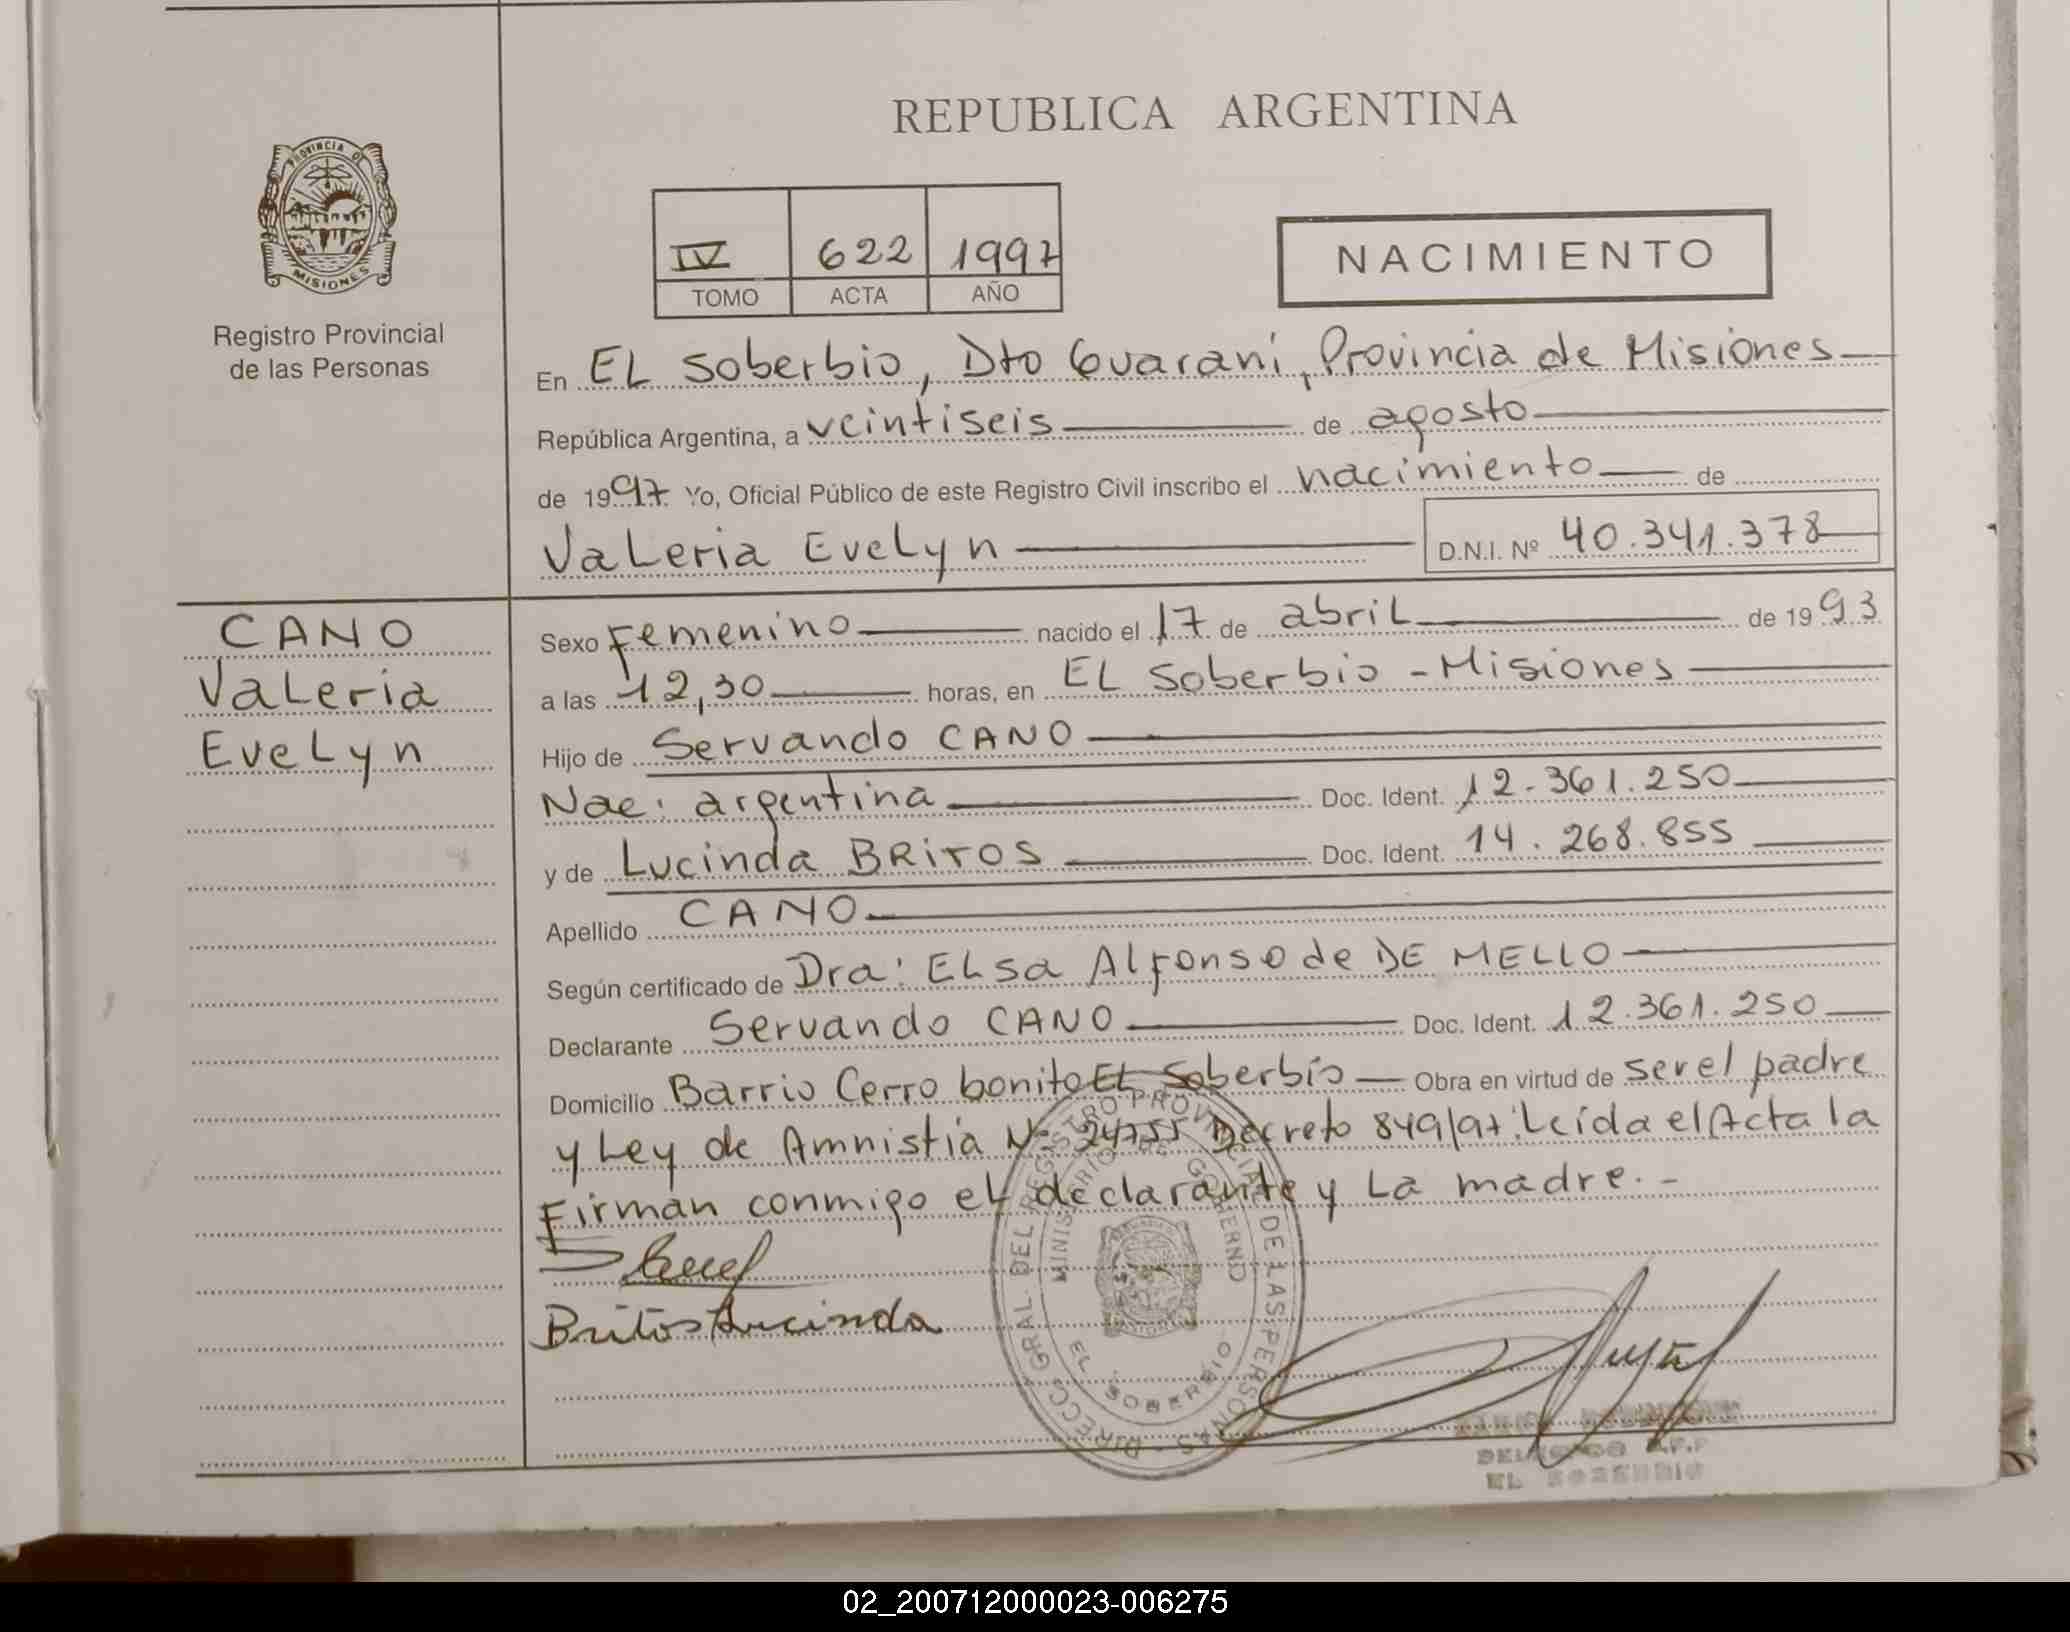 REPUBLICA ARGENTINA
PROVINCIA DE
MISIONES
Registro Provincial
de las Personas
IV 622 1997
TOMO ACTA AÑO
NACIMIENTO
En EL Soberbio, Dto Guaraní, Provincia de Misiones
República Argentina, a veintiseis de agosto
de 1997 Yo, Oficial Público de este Registro Civil inscribo el nacimiento de
Valeria Evelyn D.N.I. Nº 40.341.378
CANO
Valeria
Evelyn
Sexo Femenino nacido el 17 de abril de 1993
a las 12,30 horas, en EL Soberbio - Misiones
Hijo de Servando CANO
Nac: argentina Doc. Ident. 12.361.250
y de Lucinda BRITOS Doc. Ident. 14.268.855
Apellido CANO
Según certificado de Dra: Elsa Alfonso de DE MELLO
Declarante Servando CANO Doc. Ident. 12.361.250
Domicilio Barrio Cerro bonito EL Soberbio Obra en virtud de ser el padre
y Ley de Amnistia Nº 24755 Decreto 849/97. Leída el Acta la
Firman conmigo el declarante y La madre. -
Britos Lucinda
DIRECC. GRAL. DEL REGISTRO PROVINCIAL DE LAS PERSONAS -
MINISTERIO DE GOBIERNO
EL SOBERBIO
EL SOBERBIO
02_200712000023-006275